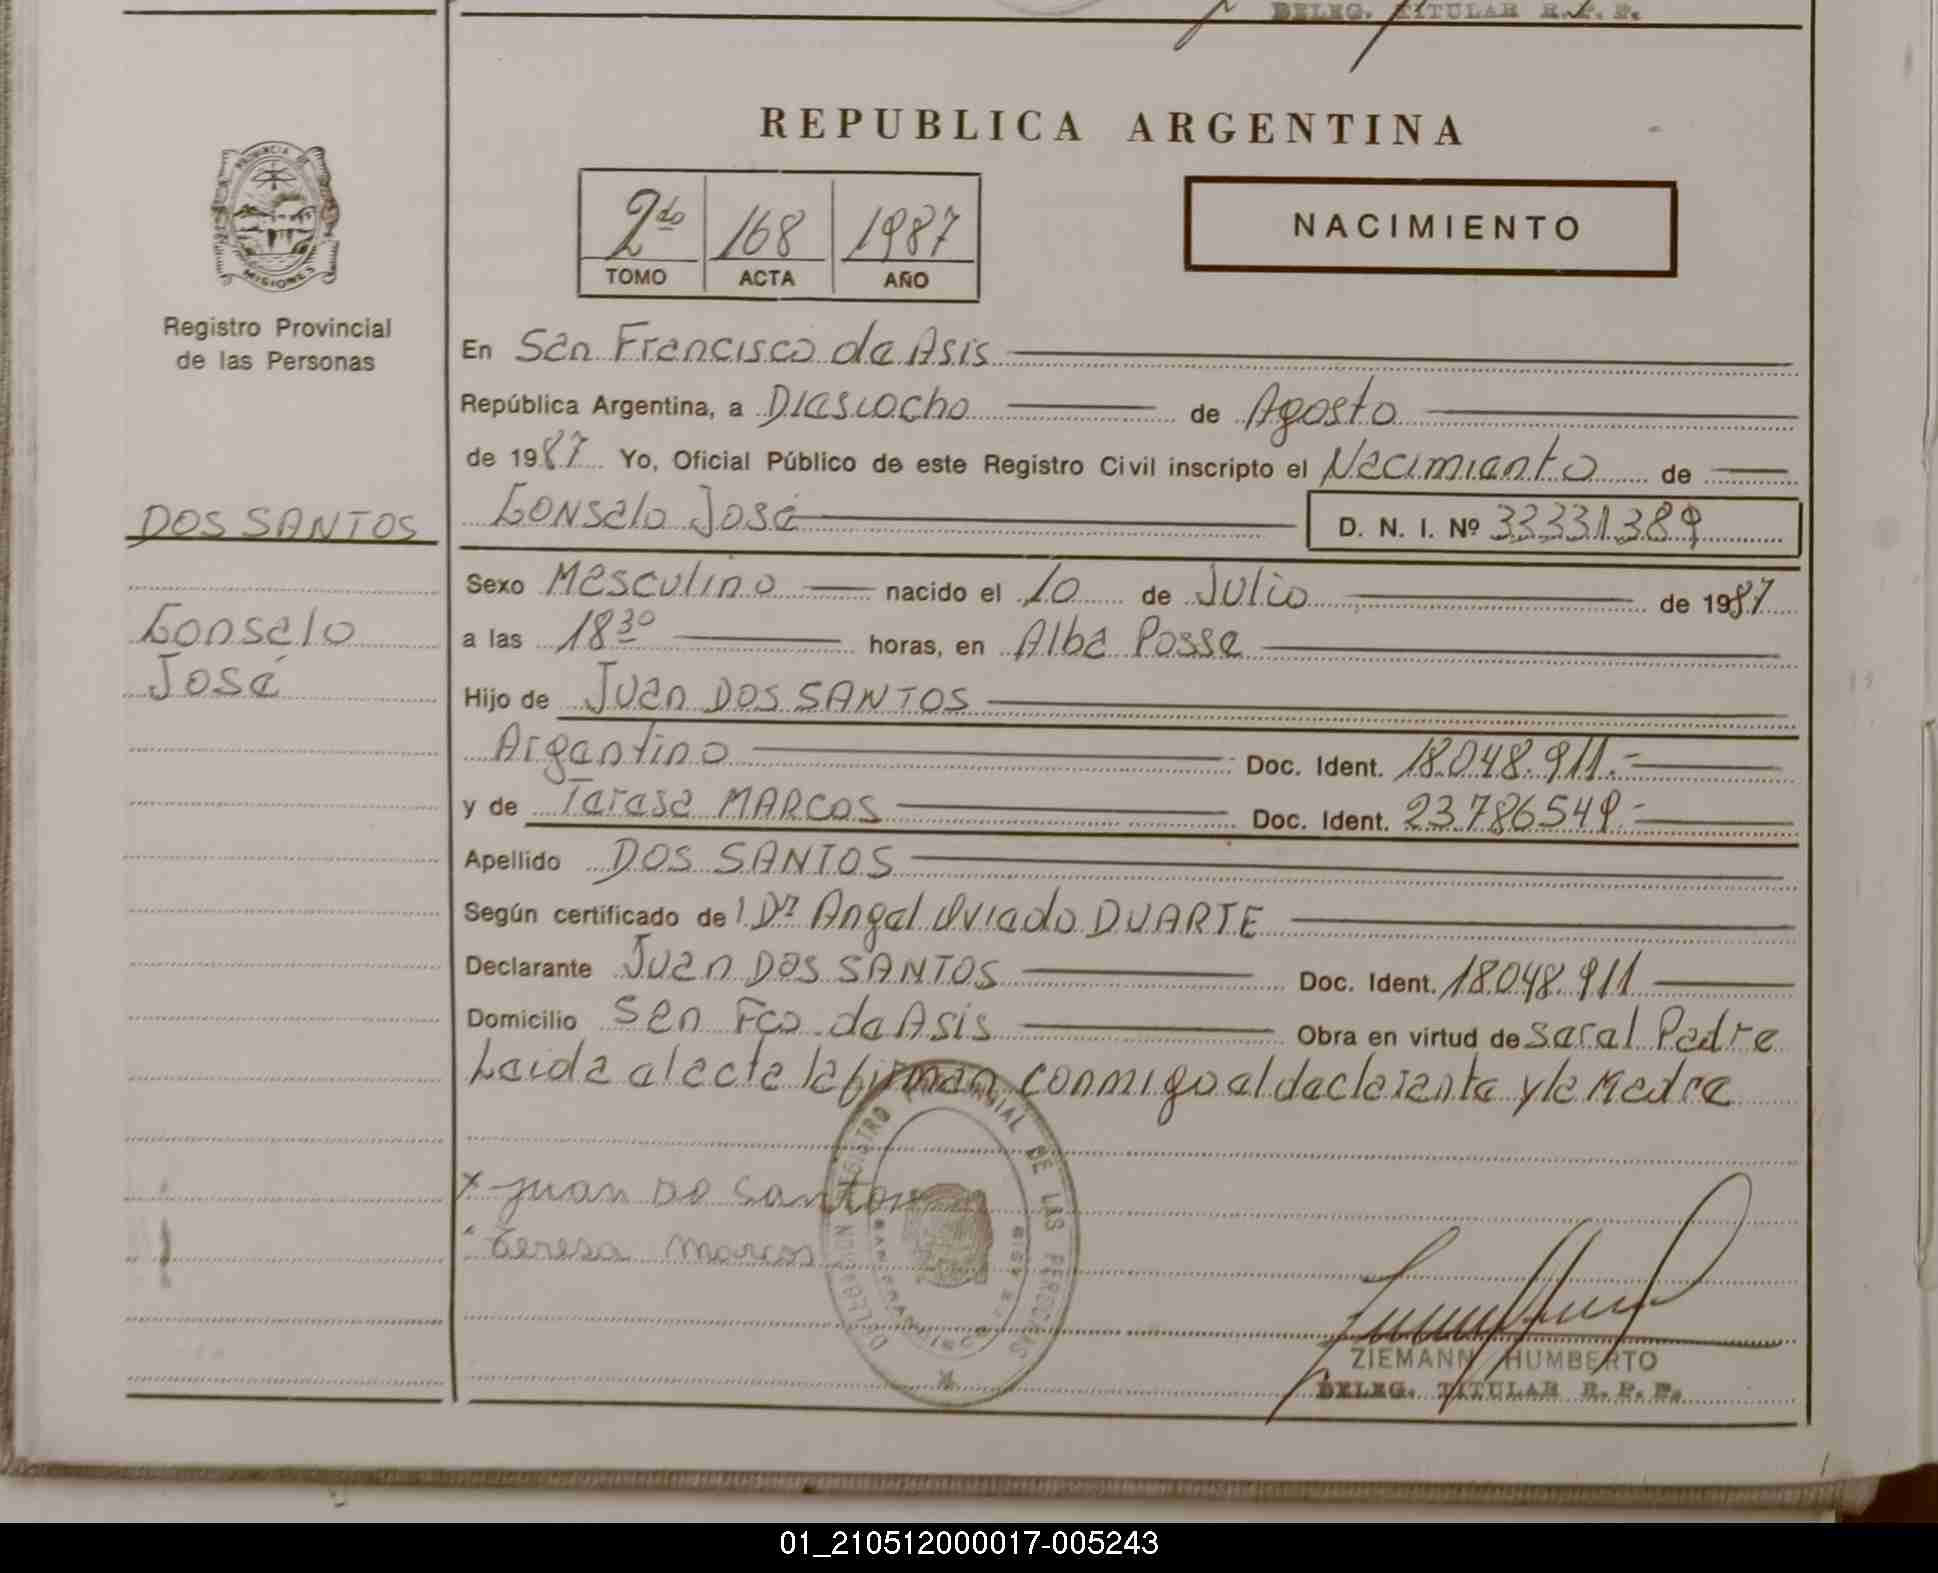 DELEG. TITULAR R. P. P.
REPUBLICA ARGENTINA
PROVINCIA DE
MISIONES
Registro Provincial
de las Personas
2do 168 1987
TOMO ACTA AÑO
NACIMIENTO
En San Francisco de Asis
República Argentina, a Diesiocho de Agosto
de 1987 Yo, Oficial Público de este Registro Civil inscripto el Nacimiento de
DOS SANTOS
Gonsalo José D. N. I. Nº 33331389
Sexo Masculino nacido el 10 de Julio de 1987
Gonsalo
José
a las 18 30 horas, en Alba Posse
Hijo de Juan DOS SANTOS
Argentino Doc. Ident. 18.048.911.-
y de Teresa MARCOS Doc. Ident. 23.786549.-
Apellido DOS SANTOS
Según certificado de Dr Angel Oviedo DUARTE
Declarante Juan DOS SANTOS Doc. Ident. 18.048.911
Domicilio San Fco. de Asis Obra en virtud de ser el Padre
Leida el acta la firman conmigo el declarante y la Madre
REGISTRO PROVINCIAL DE LAS PERSONAS
DELEGACION
x juan Do Santos
teresa marcos
ZIEMANN HUMBERTO
DELEG. TITULAR R. P. P.
01_210512000017-005243